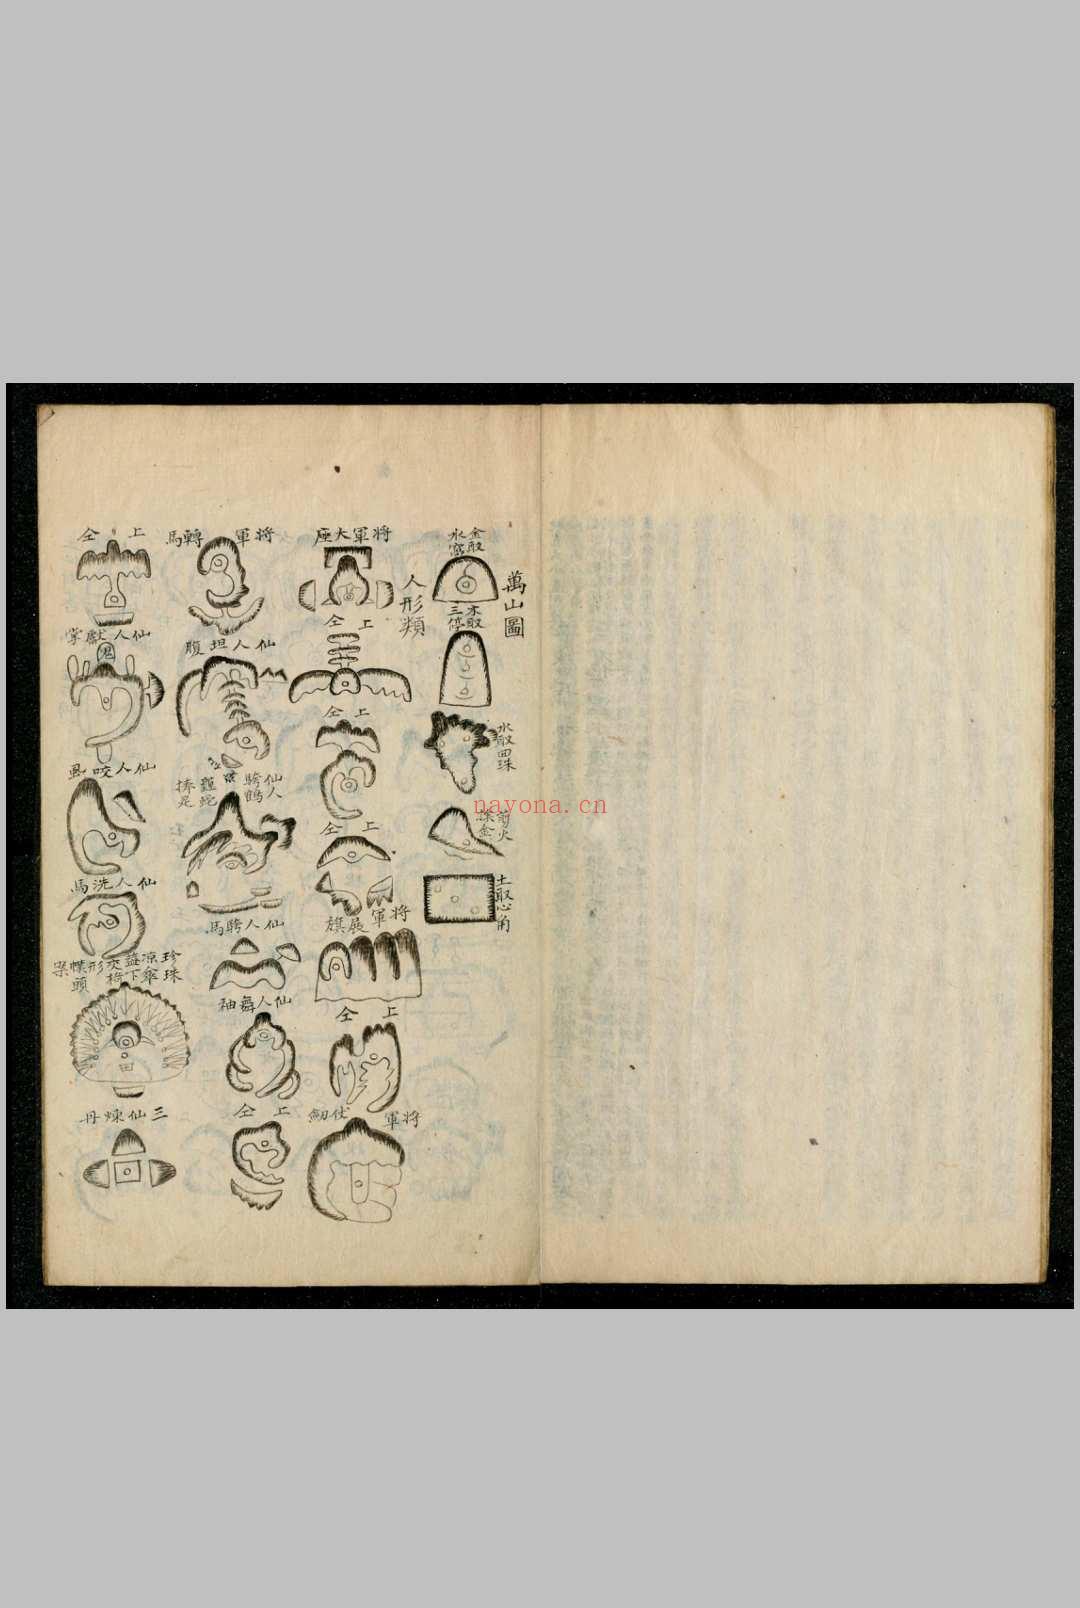 萬山圖
金取
水窩
木取
三停
水取曲珠
剪火
条金
土取心角
人形類
將軍大座
上仝
上仝
上仝
將軍展旗
上仝
將軍仗劒
將軍轉馬
仙人坦腹
仙人
騎鶴
仙人騎馬
仙人舞袖
上仝
上仝
仙人獻掌
仙人咬虱
仙人洗馬
珍珠
凉傘
蓋下
交椅
形
幞頭
案
三仙煉丹
nayona.cn